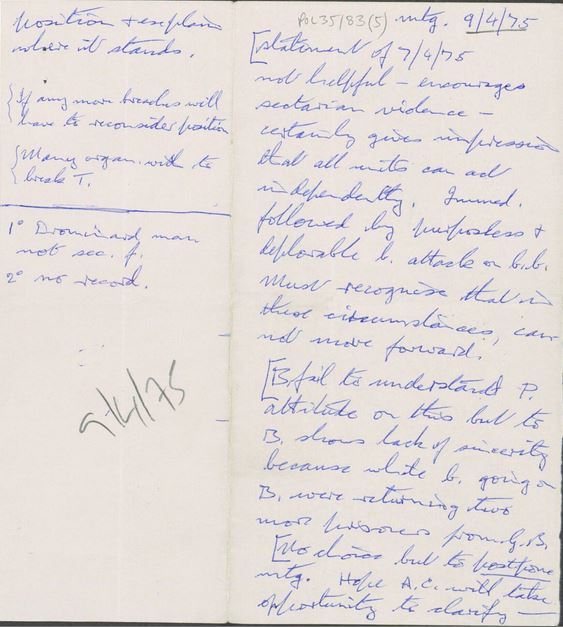 position & explain
where it stands.
{If any more breaches will
have to reconsider position
{Many organ. wish to
break T.
1° Drominard man
not sec. f.
2° no record.
9/4/75
POL35/83(5) mtg. 9/4/75
[statement of 7/4/75
not helpful – encourages
sectarian violence –
certainly gives impression
that all units can act
independently. Immed.
followed by purposeless &
deplorable b. attack on b.b.
Must recognise that in
these circumstances, can
not move forward.
[B fail to understand P.
attitude on this but to
B. shows lack of sincerity
because while b. going on
B. were returning two
more prisoners from G.B.
[No choice but to postpone
mtg. Hope A.C. will take
opportunity to clarify –